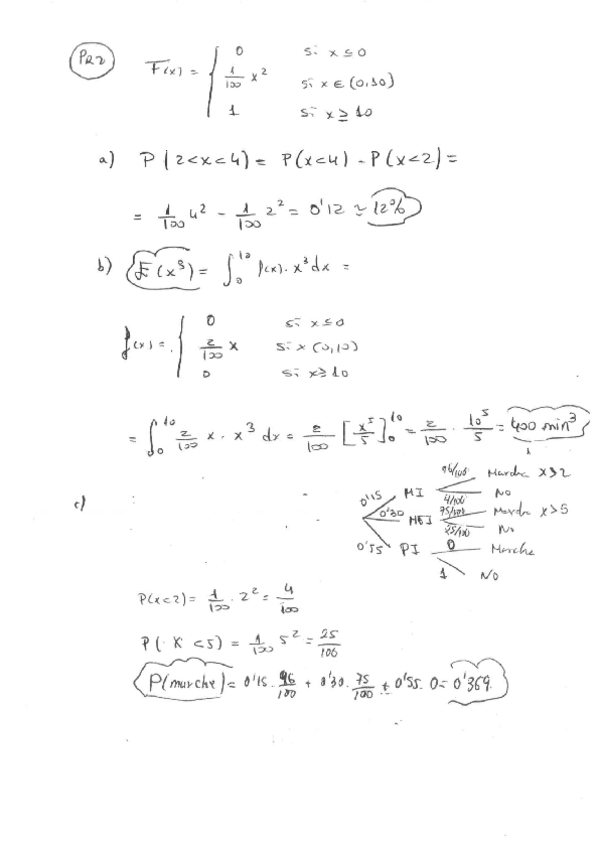 PR2
F(x) = { 0 si x ≤ 0
1/100 x² si x ∈ (0,10)
1 si x ≥ 10
a) P(2<x<4) = P(x<4) - P(x<2) =
= 1/100 4² - 1/100 2² = 0'12 ≃ 12%
b) E(x³) = ∫₀¹⁰ f(x)·x³dx =
f(x) = { 0 si x ≤ 0
2/100 x si x (0,10)
0 si x ≥ 10
= ∫₀¹⁰ 2/100 x · x³ dx = 2/100 [x⁵/5]₀¹⁰ = 2/100 · 10⁵/5 = 400 min³
c)
96/100 Marcha x>2
0'15 MI
4/100 No
0'30 MEI 75/100 Marcha x>5
25/100 No
0'55 PI 0 Marcha
1 NO
P(x<2) = 1/100 · 2² = 4/100
P(X<5) = 1/100 5² = 25/100
P(marche) = 0'15 · 96/100 + 0'30 · 75/100 + 0'55 · 0 = 0'369